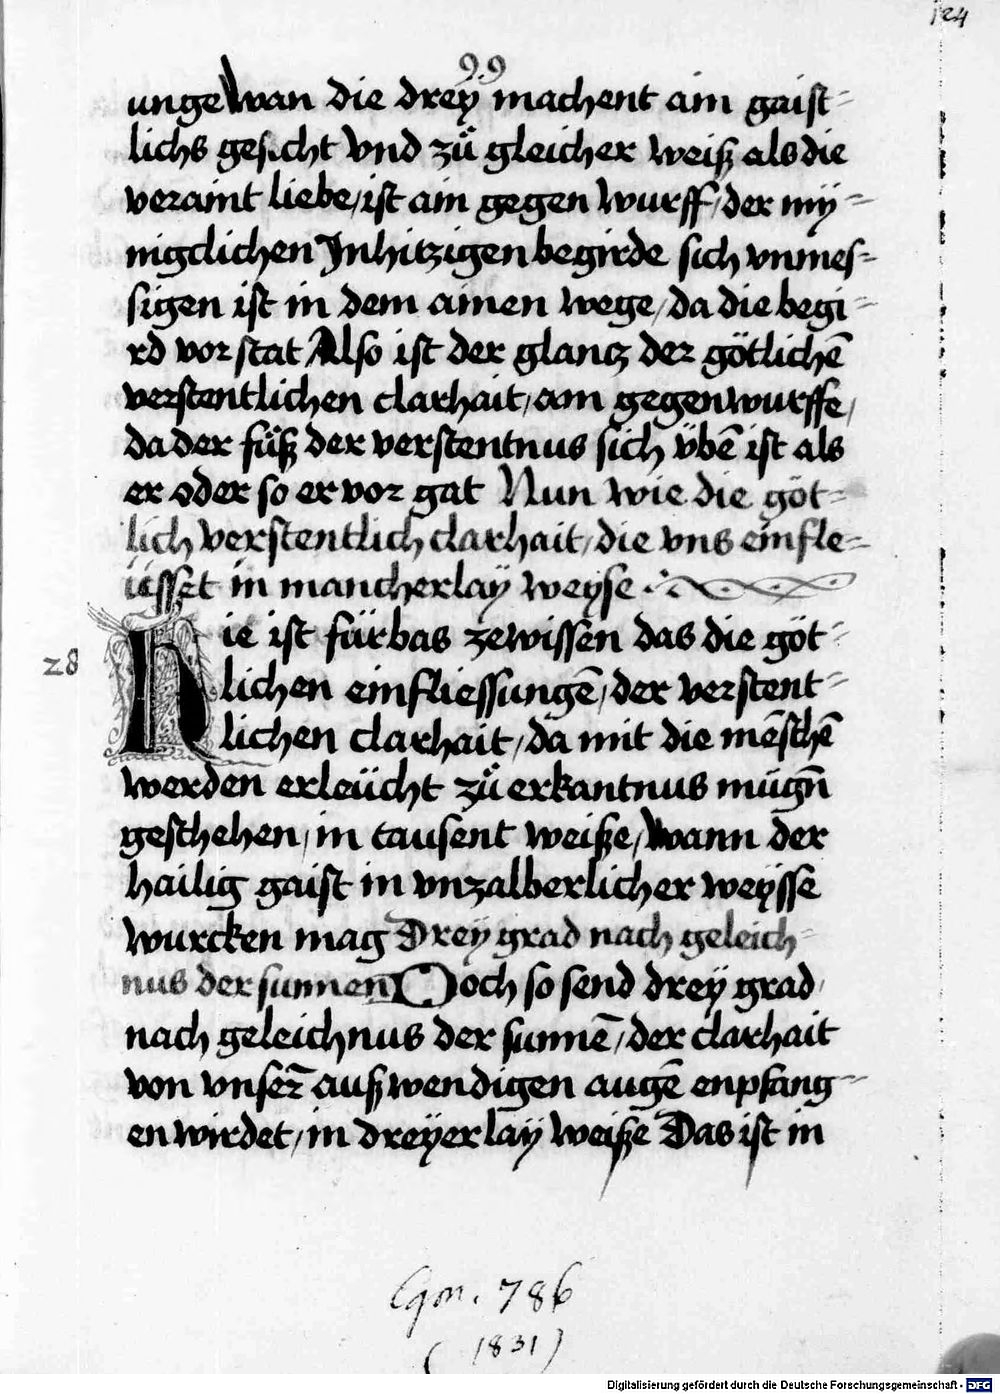 124
99
unge Wan die dreÿ machent ain gaist=
lichs gesicht vnd zů gleicher weiß als die
veraint liebe/ ist ain gegen wurff/ der mÿ=
nigclichen Jnhitzigen begirde sich vnmes=
sigen ist in dem ainen wege/ da die begi=
rd vor stat Also ist der glantz der götlichē
verstentlichen clarhait/ ain gegenwurffe/
da der fůß der verstentnus sich übē ist als
er oder so er vor gat Nun wie die göt=
lich verstentlich clarhait/ die vns einfle=
üsset in mancherlaÿ weyse
Hie ist fürbas zewissen das die göt=
lichen einfliessungē/ der verstent=
lichen clarhait/ da mit die mēschē
werden erleücht zů erkantnus mügn̄
geschehen/ in tausent weiße/ Wann der
hailig gaist in vnzalberlicher weÿsse
wurcken mag Dreÿ grad nach geleich=
nus der sunnen Doch so send dreÿ grad
nach geleichnus der sunnē/ der clarhait
von vnser̄ außwendigen augē enpfang=
en wirdet/ in dreÿer laÿ weiße Das ist in
28
Cgm. 786
(1831)
Digitalisierung gefördert durch die Deutsche Forschungsgemeinschaft - DFG